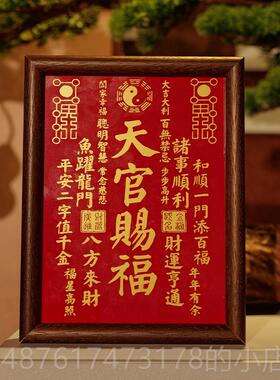 和順一門添百福
年年有余
諸事順利
財運亨通
大吉大利
百無禁忌
步步高升
天官賜福
闔家幸福
聰明智慧
常念慈悲
八方來財
魚躍龍門
平安二字值千金
福星高照
487617473178的小店